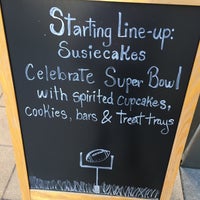 Starting Line-up:
Susiecakes
Celebrate Super Bowl
with spirited cupcakes,
cookies, bars & treat trays